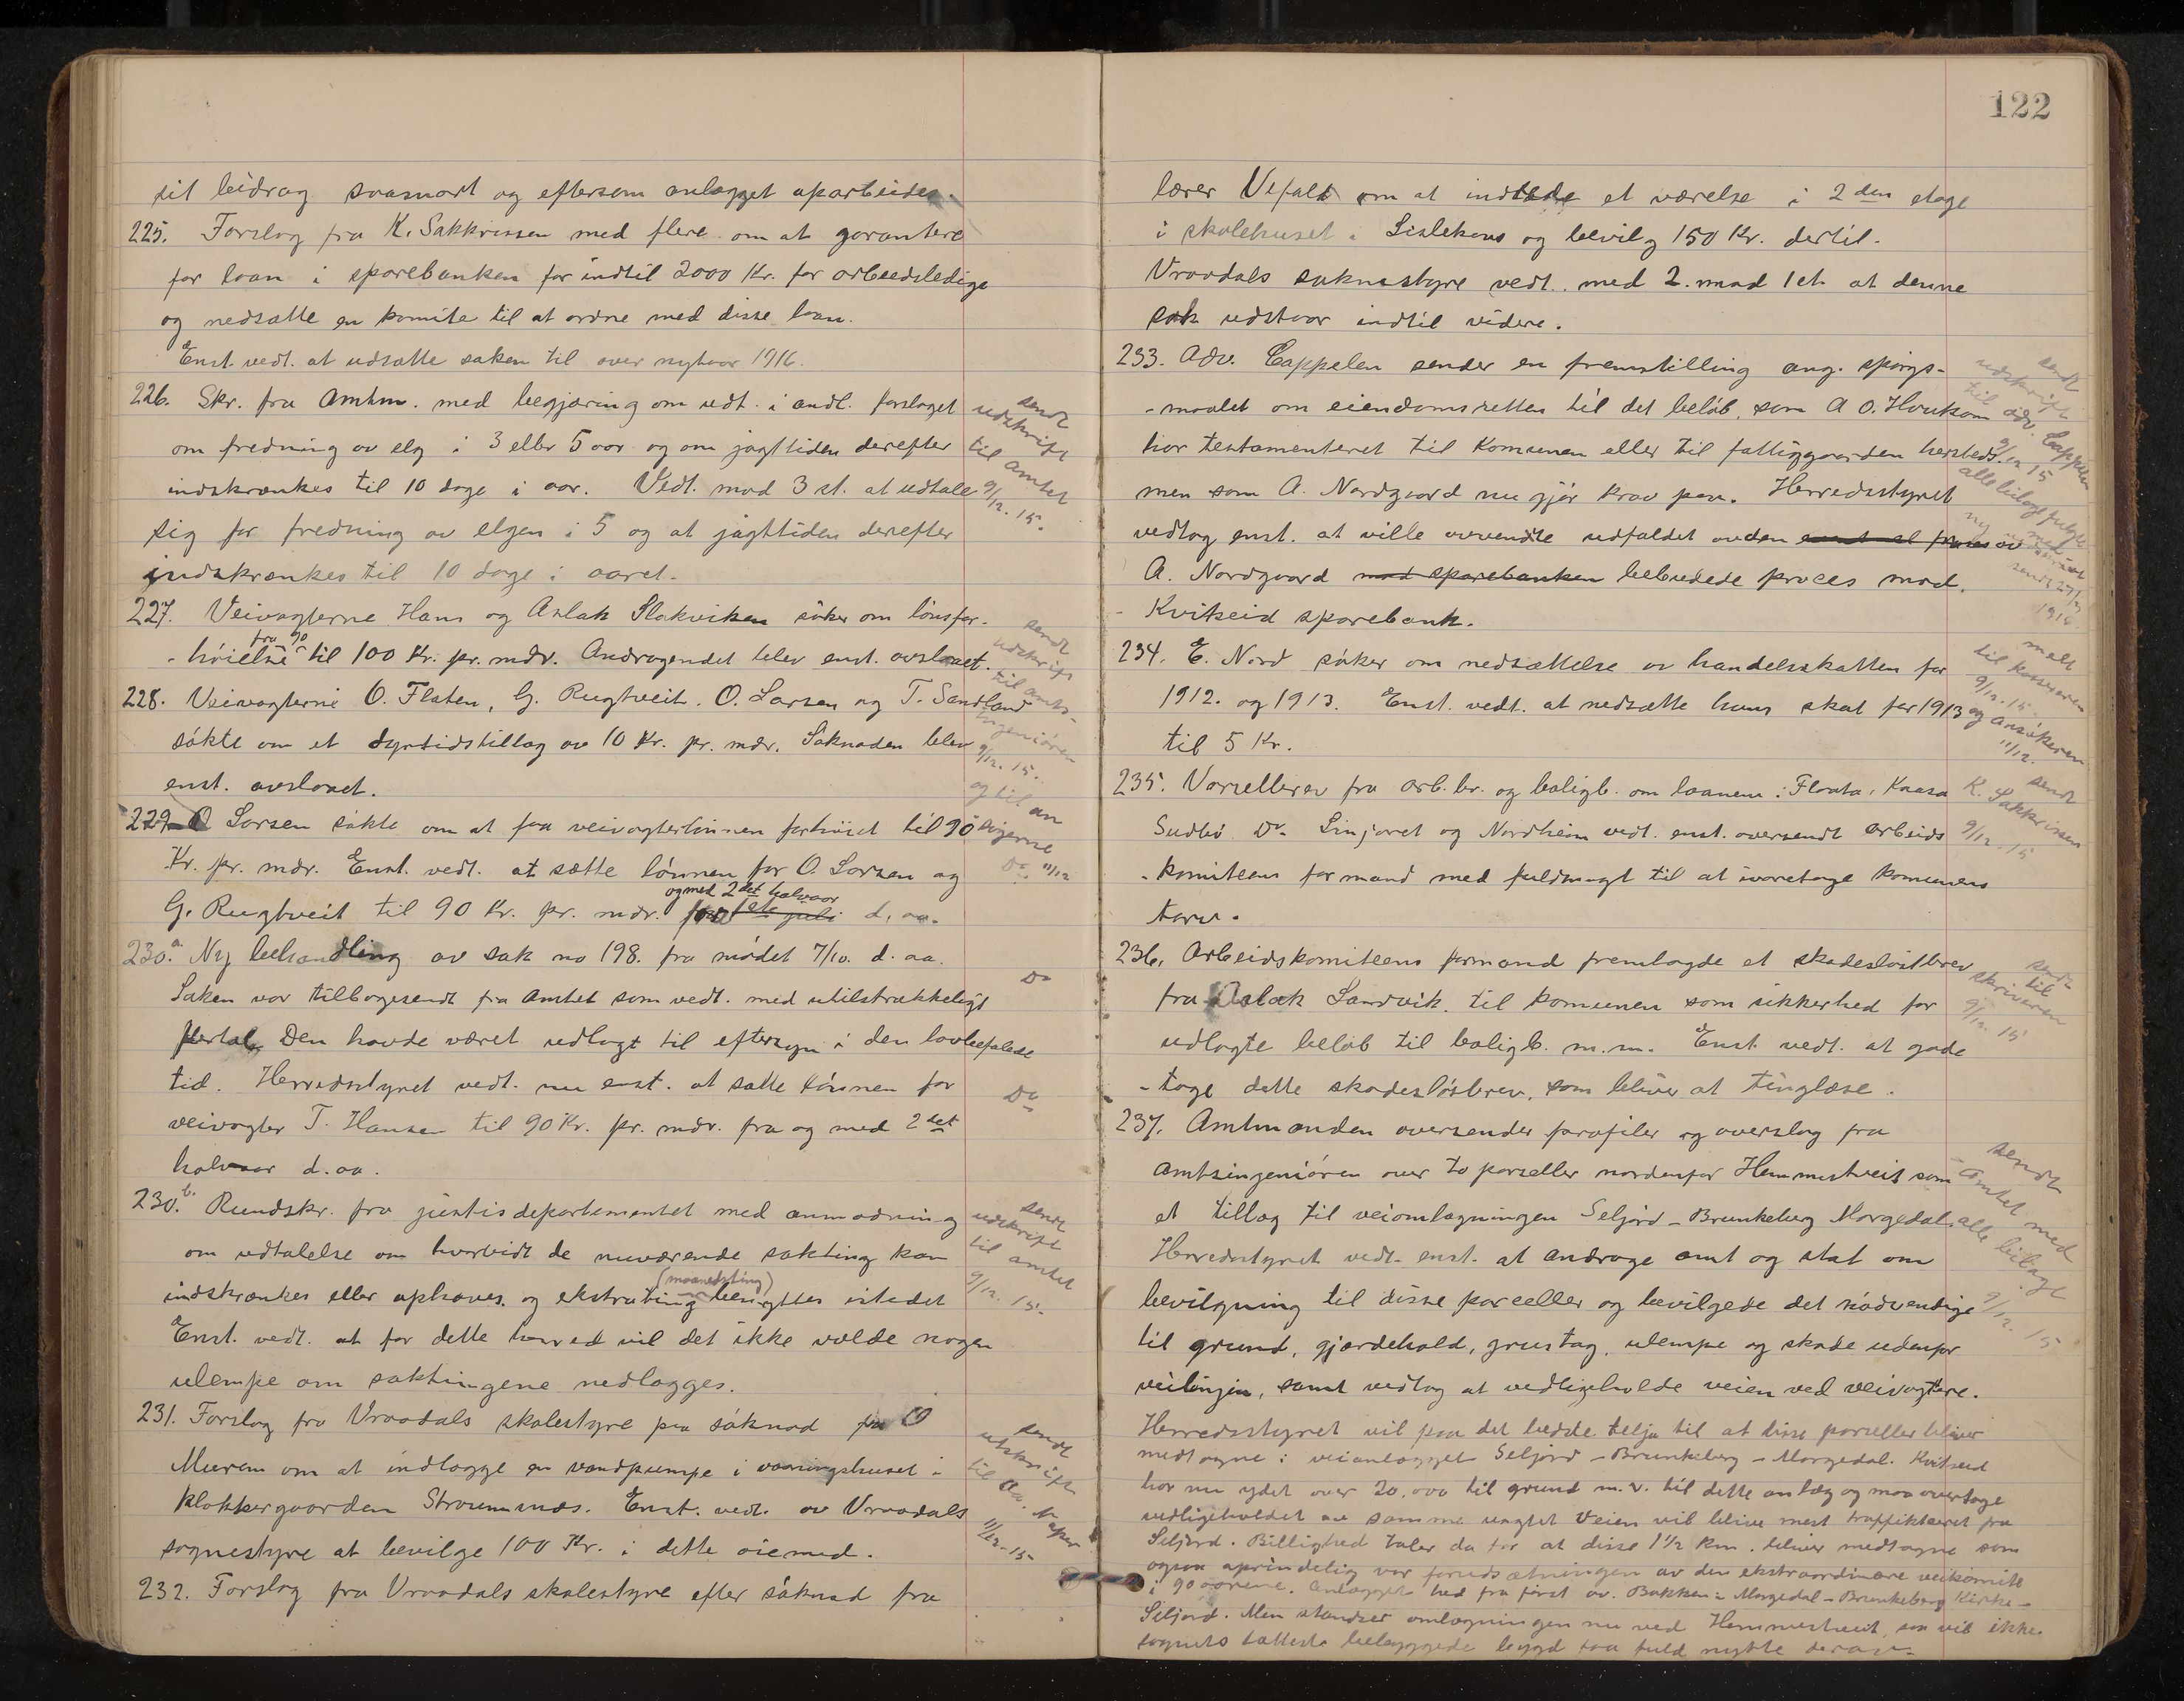 sit bidrag svasnart og eftersom anlægget oparbeides.
225. Forslag fra K. Sakkrissen med flere om at garantere
for laan i sparebanken for indtil 2000 Kr. for arbeidsledige
og nedsætte en komite til at ordne med disse laan.
Enst. vedt. at udsætte saken til over nytaar 1916.
226. Skr. fra Amtm. med begjæring om vedt. i anl. forslaget
om fredning av elg i 3 eller 5 aar og om jagttiden derefter
indskrænkes til 10 dage i aar. Vedt. mod 3 st. at udtale
sig for fredning av elgen i 5 og at jagttiden derefter
indskrænkes til 10 dage i aaret.
sendt
udskrift
til amtet
9/12. 15.
227. Veivogterne Hans og Aslak Slakviken søker om lønsfor-
-høielse fra 90 til 100 Kr. pr. mdr. Andragendet blev enst. avslaaet.
228. Veivogterne O. Flaten, G. Rugtveit. O. Larsen og T. Sandland
søkte om et dyrtidstillæg av 10 Kr. pr. mdr. Søknaden blev
enst. avslaaet.
sendt
udskrift
til amts-
ingeniøren
9/12. 15.
og til an
søgerne
11/12
229. O Larsen søkte om at faa veivogterlønnen forhøiet til 90
Kr. pr. mdr. Enst. vedt. at sætte lønnen for O. Larsen og
G. Rugtveit til 90 Kr. pr. mdr. fra 1ste juli og med 2det halvaar d. aa.
Do
230.a Ny behandling av sak no 198. fra mødet 7/10. d. aa.
Saken var tilbagesendt fra Amtet som vedt. med utilstrækkeligt
flertal. Den havde været udlagt til eftersyn i den lovbefalede
tid. Herredsstyret vedt. nu enst. at sætte lønnen for
veivogter T. Hansen til 90 Kr. pr. mdr. fra og med 2det
halvaar d. aa.
Do
Do
230.b. Rundskr. fra justisdepartementet med anmodning
om udtalelse om hvorvidt de nuværende sakting kan
indskrænkes eller ophæves. og ekstrating (maanedsting) benyttes istedet
Enst. vedt. at for dette herred vil det ikke volde nogen
ulempe om saktingene nedlægges.
sendt
udskrift
til amtet
9/12. 15.
231. Forslag fra Vraadals skolestyre paa søknad fra O
Murem om at indlægge en vandpumpe i vaaningshuset i
Klokkergaarden Straumsnæs. Enst. vedt. av Vraadals
sognestyre at bevilge 100 Kr. i dette øiemed.
sendt
utskrift
til
11/12-15
232. Forslag fra Vraadals skolestyre efter søknad fra
122
lærer Vefald om at indrede et værelse i 2den etage
i skolehuset i Lislekaas og bevilg 150 Kr. dertil.
Vraadals soknestyre vedt. med 2. mod 1 st. at denne
sak udstaar indtil videre.
233. Adv. Cappelen sender en fremstilling ang. spørgs-
-maalet om eiendomsretten til det beløb, som A O. Haukom
har testamenteret til Komunen eller til fattiggaarden hersteds.
men som A. Nordgaard nu gjør krav paa. Herredsstyret
vedtog enst. at ville avvendte udfaldet av den av
A. Nordgaard mod sparebanken bebudede proces mod.
Kvitseid sparebank.
sendt
udskrift
til adv. Cappelen
9/12 15
alle bilage fulgte
sendt 27/3
1916.
234. E. Nord søker om nedsættelse av handelsskatten for
1912. og 1913. Enst. vedt. at nedsætte hans skat for 1913
til 5 Kr.
melt
til kasseren
9/12. 15.
og ansøkeren
11/12.
235. Varselbrev fra Arb. br. og boligb. om laanene: Flaata, Kaasa
Sudbø Do Linjaret og Nordheim vedt. enst. oversendt Arbeids
-komiteens formand med fuldmagt til at ivaretage komunens
tarv.
sendt
K. Sakkrissen
9/12. 15
236. Arbeidskomiteens formand fremlagde et skadesløstbrev
fra Aslak Sandvik. til komunen som sikkerhed for
udlagte beløb til boligb. m.m. Enst. vedt. at godt
-tage dette skadesløsbrev, som bliver at tinglæse.
sendt
til
skriveren
9/12. 15
237. Amtmanden oversender profiler og overslag fra
Amtsingeniøren over to parseller nordenfor Hemmestveit som
et tillæg til veiomlægningen Seljord - Brunkeberg Morgedal.
Herredsstyret vedt. enst. at androge amt og stat om
bevilgning til disse parceller og bevilgede det nødvendige
til grund, gjærdehold, grustag, ulempe og skade udenfor
veilinjen, samt vedtog at vedligeholde veien ved veivogtere.
sendt
Amtet med
alle bilage
9/12. 15
Herredsstyret vil paa det bedste telja til at disse parseller bliver
medtagne i veianlægget Seljord - Brunkeberg - Morgedal. Kvitseid
har nu ydet over 20.000 til grund m.v. til dette anlæg og maa overtage
vedligeholdet av samme uagtet veien vil blive mest traffikkeret fra
Seljord. Billighed taler da for at disse 1 1/2 Km. bliver medtagne som
ogsaa oprindelig var forudsætningen av den ekstraordinære veikomite
i 90 aarene. Anlægget hed fra først av. Bakken i Morgedal - Brunkeberg Kirke -
Seljord. Men standser omlægningen nu ved Hemmestveit, saa vil ikke
sognets tætteste bebyggede bygd faa fuld nytte derav.